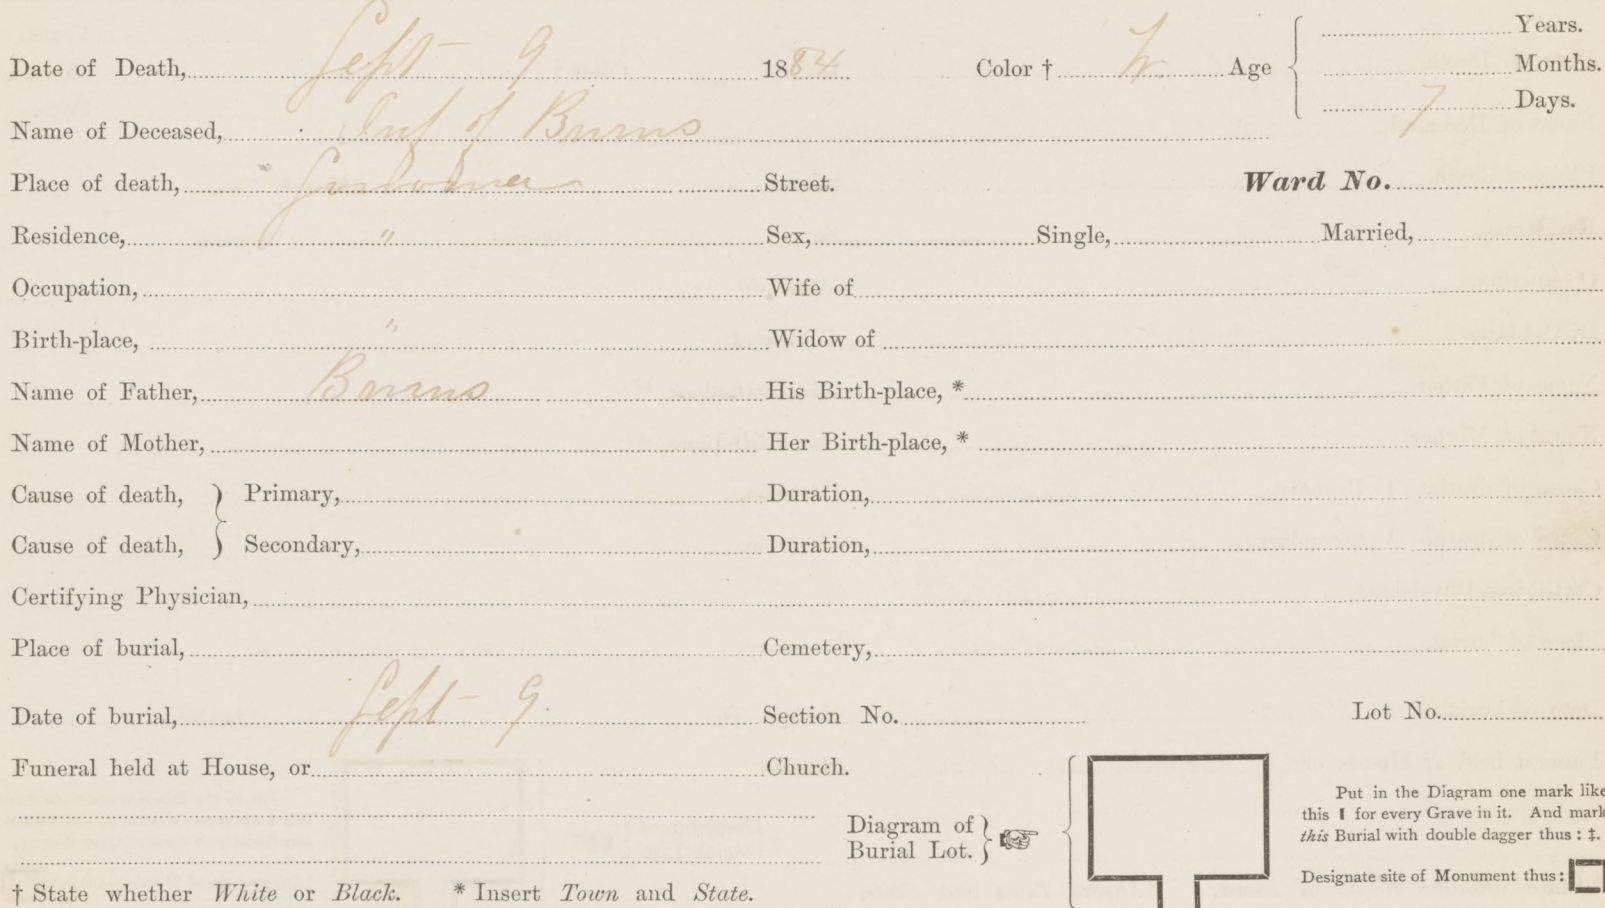 Date of Death, Sept 9 1884 Color † W. Age Years.
Months.
7 Days.
Name of Deceased, Inf of Burns
Place of death, Street. Ward No.
Residence, " Sex, Single, Married,
Occupation, Wife of
Birth-place, " Widow of
Name of Father, Burns His Birth-place, *
Name of Mother, Her Birth-place, *
Cause of death, } Primary, Duration,
Cause of death, } Secondary, Duration,
Certifying Physician,
Place of burial, Cemetery,
Date of burial, Sept 9. Section No. Lot No.
Funeral held at House, or Church.
Diagram of
Burial Lot. }
Put in the Diagram one mark like
this ❙ for every Grave in it. And mark
this Burial with double dagger thus: ‡.
Designate site of Monument thus:
† State whether White or Black. * Insert Town and State.